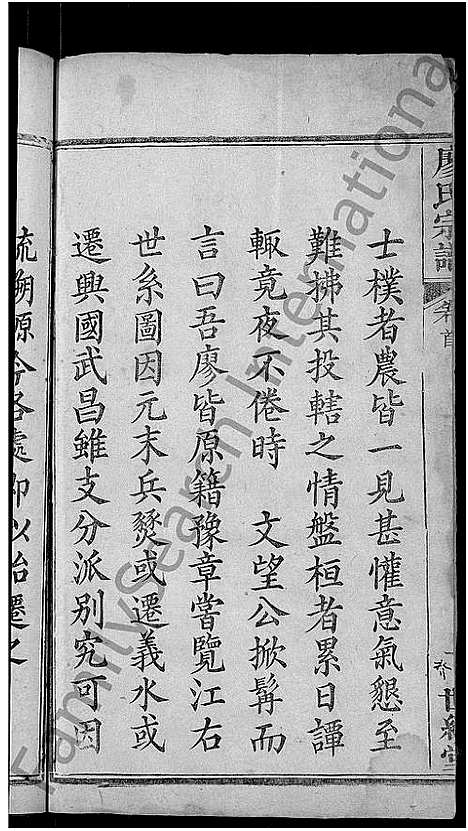 廖氏宗譜
卷首
士樸者農皆一見甚懽意氣懇至
難拂其投轄之情盤桓者累日譚
輒竟夜不倦時　文望公掀髯而
言曰吾廖皆原籍豫章嘗覽江右
世系圖因元末兵燹或遷義水或
遷興國武昌雖支分派別究可因
流溯源今各處仰以始遷之
FamilySearch International